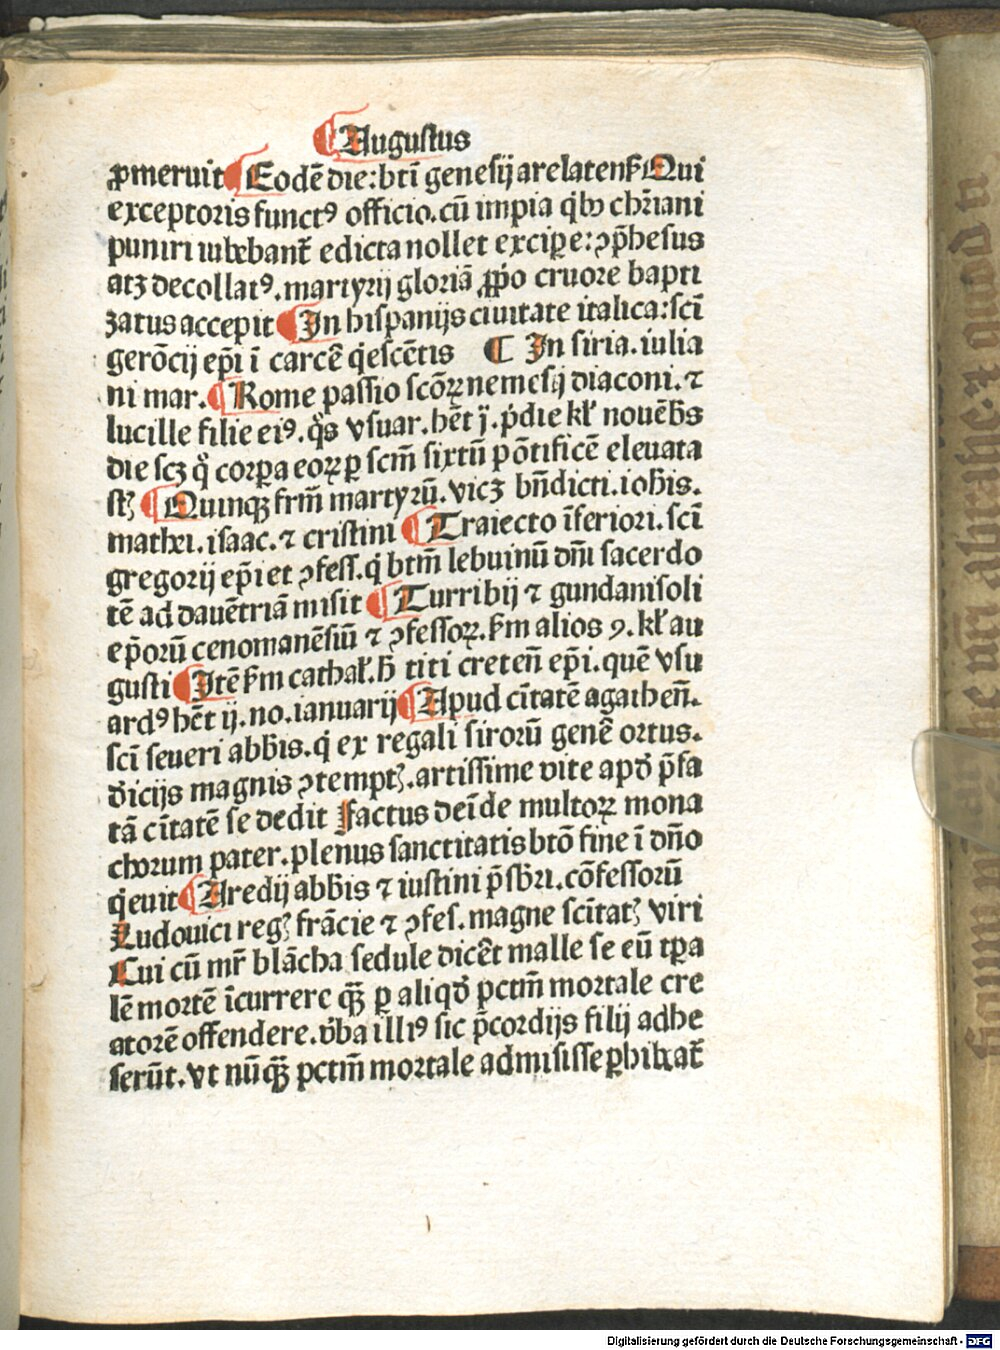 ¶Augustus
ꝓmeruit ¶Eodē die: bt̄i genesij arelatenẜ Qui
exceptoris functꝰ officio. cū impia qͥbꝰ chr̄iani
puniri iubebant̄ edicta nollet excipe: ꝓp̄hesus
atqꝫ decollatꝰ. martyrij gloriā ꝓp̄o cruore bapti
zatus accepit ¶In hispanijs ciuitate italica: sc̄i
gerōcij ep̄i ī carcē qͥescētis ¶ In siria. iulia
ni mar. ¶Rome passio scōꝝ nemesij diaconi. ⁊
lucille filie eiꝰ. qͦs vsuar. hēt ij. pͥdie kł nouēb̄s
die scꝫ qͦ corpꝑa eoꝝ ꝑ scm̄ sixtū pōtificē eleuata
st̄ ¶Quinqꝫ frm̄ martyꝝū. vicꝫ bn̄dicti. ioh̄is.
mathei. isaac. ⁊ cristini ¶Traiecto īferiori. sc̄i
gregorij ep̄i et ꝯfess. qͥ btm̄ lebuinū dn̄i sacerdo
tē ad dauētriā misit ¶Turribij ⁊ gundanisoli
ep̄orū cenomanēsiū ⁊ ꝯfessoꝝ. ẜm alios 9. kł au
gusti ¶Itē ẜm cathał. h̄ titi creten̄ ep̄i. quē vsu
ardꝰ hēt ij. no. ianuarij ¶Apud cītatē agathen̄.
sc̄i seueri abb̄is. qͥ ex regali sirorū genē ortus.
d̄icijs magnis ꝯtemptꝭ. artissime vite apd̄ p̄fa
tā cītatē se dedit Factus deīde multoꝝ mona
chorum pater. plenus sanctitatis btō fine ī dn̄o
qͥeuit ¶Aredij abb̄is ⁊ iustini p̄sb̄ri. cōfessorū
Ludouici regꝭ frācie ⁊ ꝯfes. magne scītatꝭ viri
Cui cū mr̄ blācha sedule dicēt malle se eū tꝑa
lē mortē īcurrere qͣꝫ ꝑ aliqd̄ pctm̄ mortale cre
atorē offendere. v̄ba illiꝰ sic p̄cordijs filij adhe
serūt. vt nūqͣꝫ pctm̄ mortale admisisse ꝑhibeat̄
Digitalisierung gefördert durch die Deutsche Forschungsgemeinschaft - DFG